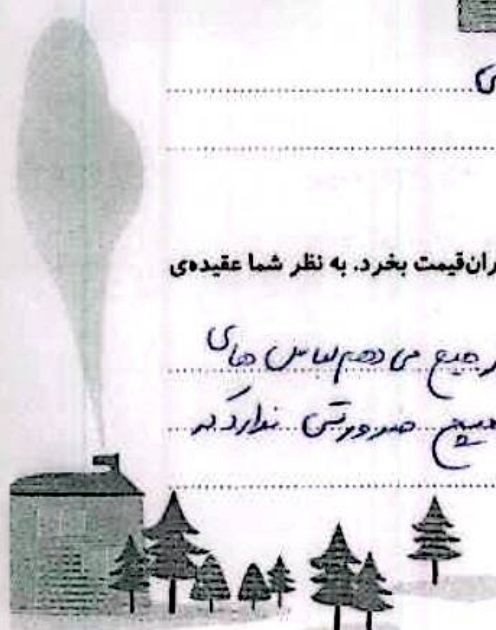 ی
ران‌قیمت بخرد. به نظر شما عقیده‌ی
می دهم لباس های
هیچ ضرورتی ندارد که